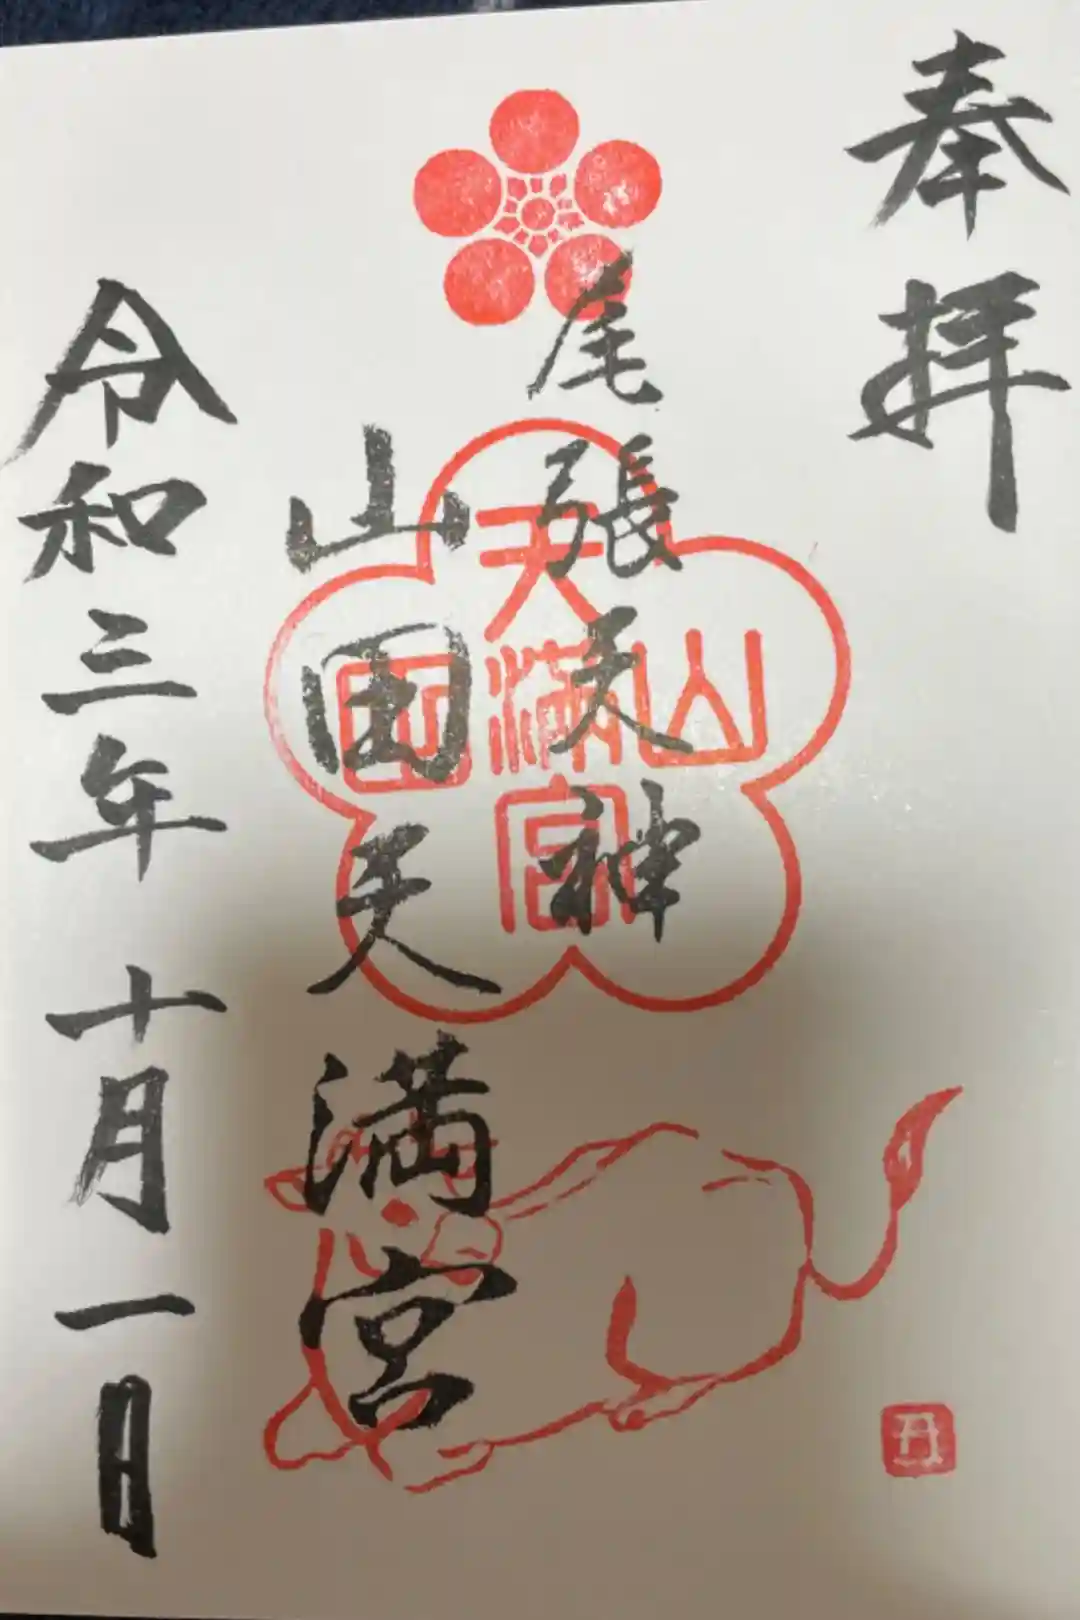 奉拝
尾張天神
山田天満宮
令和三年十月一日
天
山満田
宮